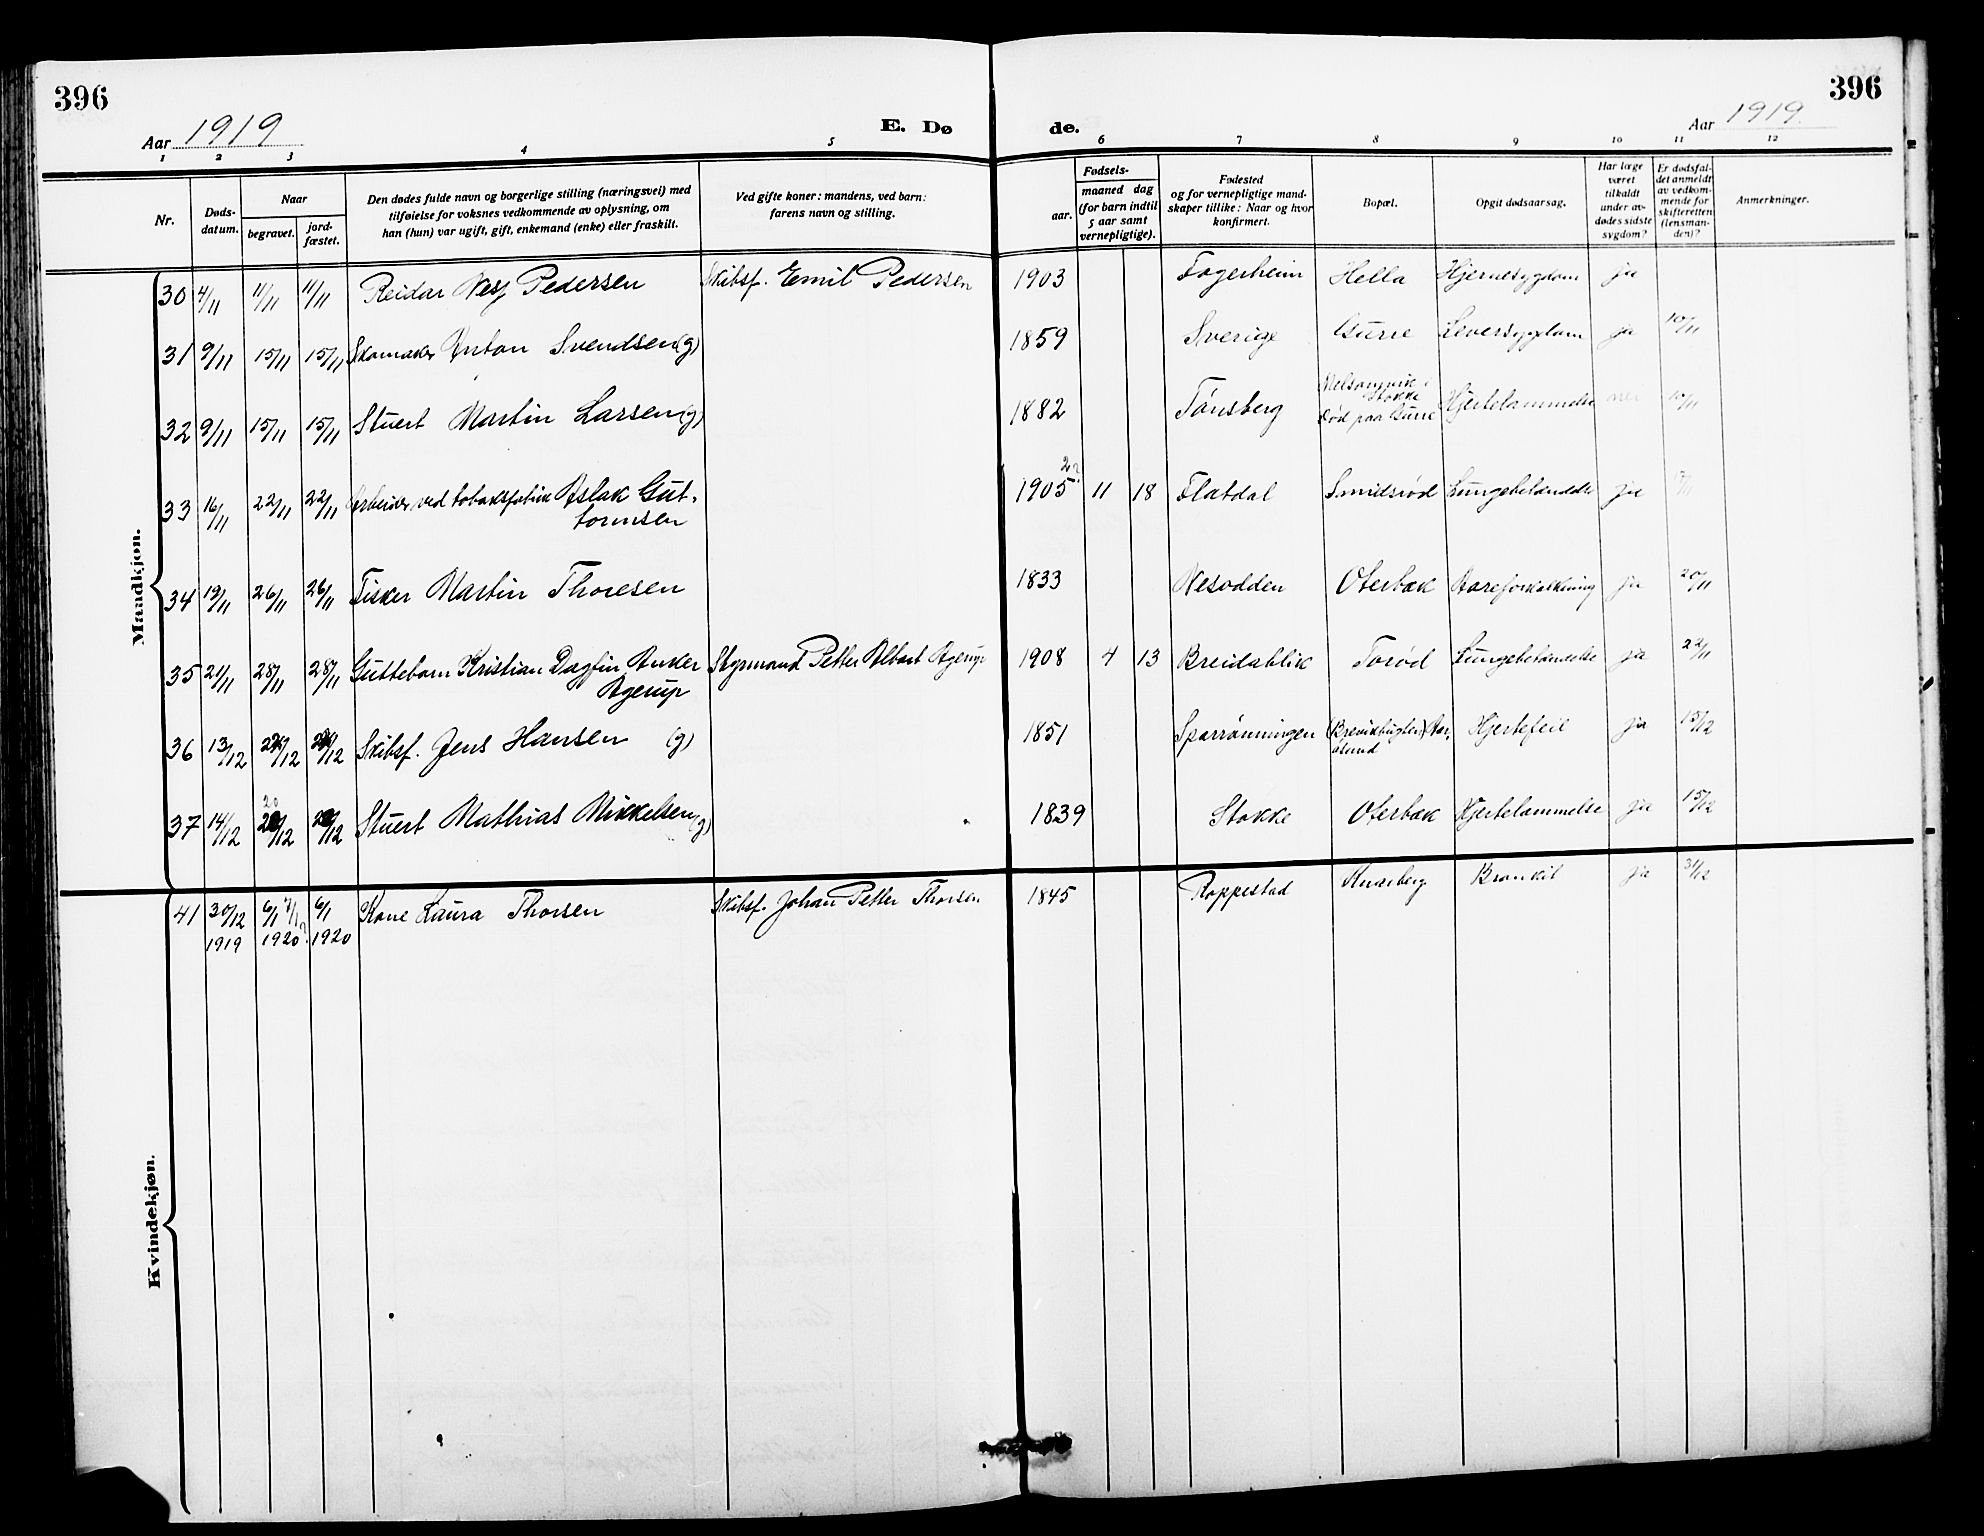 396
396
Aar 1919
E. Dø
de.
Aar 1919.
1 2 3 4 5 6 7 8 9 10 11 12
Nr.
Døds-
datum.
Naar
begravet.
jord-
fæstet.
Den dødes fulde navn og borgerlige stilling (næringsvei) med
tilføielse for voksnes vedkommende av oplysning, om
han (hun) var ugift, gift, enkemand (enke) eller fraskilt.
Ved gifte koner: mandens, ved barn:
farens navn og stilling.
Fødsels-
aar.
maaned dag
(for barn indtil
5 aar samt
vernepligtige).
Fødested
og for vernepligtige mand-
skaper tillike: Naar og hvor
konfirmert.
Bopæl.
Opgit dødsaarsag.
Har læge
været
tilkaldt
under av-
dødes sidste
sygdom?
Er dødsfal-
det anmeldt
av vedkom-
mende for
skifteretten
(lensman-
den)?
Anmerkninger.
Maadkjøn.
30 4/11 11/11 11/11 Reidar Nesj Pedersen Skibsf. Emil Pedersen 1903 Fagerheim Hella Hjernesygdom ja
31 9/11 15/11 15/11 Skomaker Anton Svendsen (g) 1859 Sverige Gurre Leversygdom ja 10/11
32 9/11 15/11 15/11 Stuert Martin Larsen (g) 1882 Tønsberg Melsomvik i
Stokke
Død paa Gurre Hjertelammelse nei 10/11
33 16/11 22/11 22/11 Arbeider ved tobaksfabrik Aslak Gut-
tormsen 1905 2? 11 18 Flatdal Smidsrød Lungebetændelse ja
34 19/11 26/11 26/11 Fisker Martin Thoresen 1833 Nesodden Oterbæk Aareforkalkning ja 20/11
35 21/11 28/11 28/11 Guttebarn Kristian Dagfin Anker
Agerup Styrmand Petter Albert Agerup 1908 4 13 Breidablik Torød Lungebetændelse ja 22/11
36 13/12 /12 /12 Skibsf. Jens Hansen (g) 1851 Sparrønningen (Brevikbugten) Aar-
ølund Hjertefeil ja 15/12
37 14/12 20 /12 /12 Stuert Mathias Mikkelsen (g) 1839 Stokke Oterbæk Hjertelammelse ja 15/12
Kvindekjøn.
41 30/12 1919 6/1 7/1? 1920 6/1 1920 Kone Laura Thorsen Skibsf. Johan Petter Thorsen 1845 Roppestad Knarberg Bronkit ja 31/12